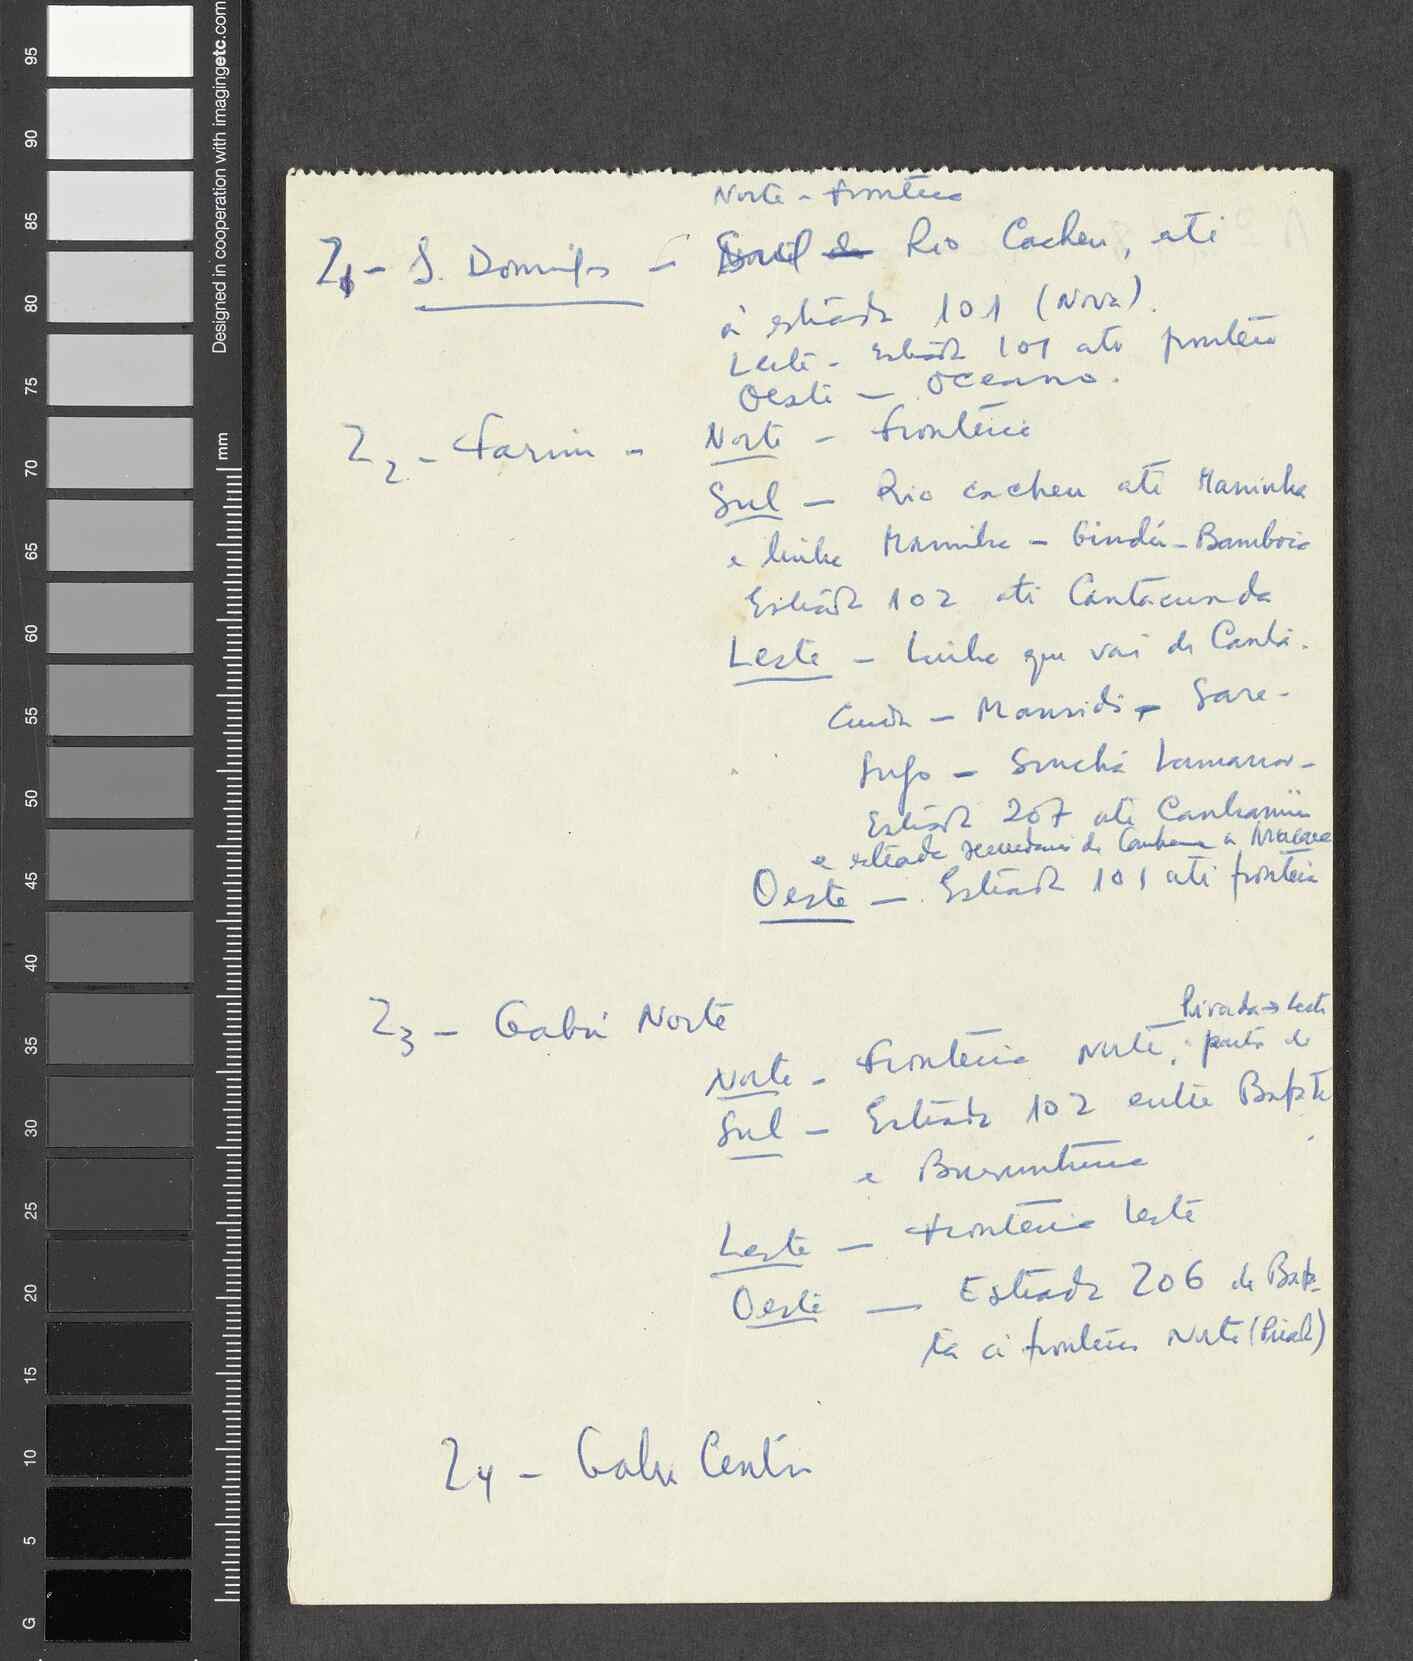 Norte - fronteira
Z1 - S. Domingos - Sul Rio Cacheu, até
à estrada 101 (Nova).
Leste - Estrada 101 até fronteira
Oeste - Oceano.
Z2 - Farim - Norte - fronteira
Sul - Rio cacheu até Maninha
e linha Maninha - Gindú - Banboia
Estrada 102 até Cantacunda
Leste - Linha que vai de Canta-
cunda - Mansidi - Sare-
- Sinchã
Estrada 207 até Canhamina
e estrada secundaria de
Oeste - Estrada 101 até fronteira
Z3 - Gabú Norte
Pirada → Leste
Norte - fronteira Norte, parte de
Sul - Estrada 102 entre Bafatá
e Buruntuma
Leste - fronteira Leste
Oeste - Estrada 206 de Bafa-
tá à fronteira Norte (Pirada)
Z4 - Gabu Centro
95
90
85
80
75
70
65
60
55
50
45
40
35
30
25
20
15
10
5
G
mm
Designed in cooperation with imagingetc.com